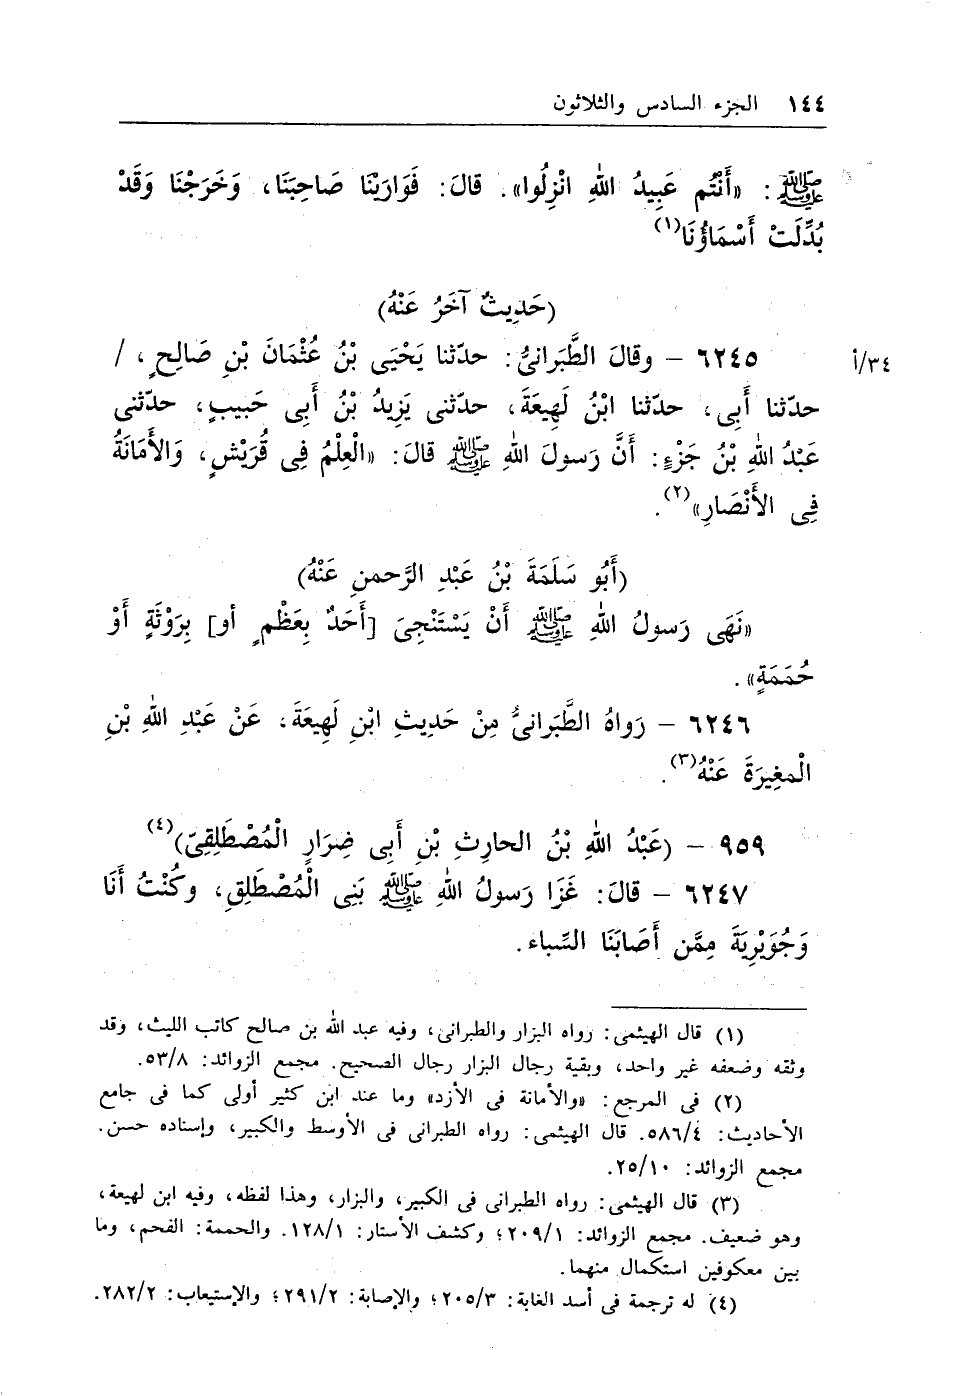 ١٤٤ الجزء السادس والثلاثون
ﷺ: «أَنْتُم عَبِيدُ اللهِ انْزِلُوا». قالَ: فَوَارَيْنَا صَاحِبَنَا، وَخَرَجْنَا وَقَدْ
بُدِّلَتْ أَسْمَاؤُنَا(١)
(حَدِيثٌ آخَرُ عَنْهُ)
٣٤/أ ٦٢٤٥ – وقالَ الطَّبَرانيُّ: حدّثنا يَحْيَى بْنُ عُثْمَانَ بْنِ صَالِحٍ، /
حدّثنا أَبي، حدّثنا ابْنُ لَهِيعَةَ، حدّثنى يَزِيدُ بْنُ أَبى حَبيبٍ، حدّثنى
عَبْدُ اللهِ بْنُ جَزْءٍ: أَنَّ رَسولَ اللهِ ﷺ قالَ: «الْعِلْمُ فِى قُرَيْشٍ، وَالأَمَانَةُ
فِى الأَنْصَارِ»(٢).
(أَبُو سَلَمَةَ بْنُ عَبْدِ الرَّحمنِ عَنْهُ)
«نَهَى رَسولُ اللهِ ﷺ أَنْ يَسْتَنْجِىَ [أَحَدٌ بِعَظْمٍ أو] بِرَوْثَةٍ أَوْ
حُمَمَةٍ».
٦٢٤٦ – رَواهُ الطَّبَرانىُّ مِنْ حَدِيثِ ابْنِ لَهِيعَةَ، عَنْ عَبْدِ اللهِ بْنِ
الْمغِيرَةَ عَنْهُ(٣).
٩٥٩ – (عَبْدُ اللهِ بْنُ الحارِثِ بْنِ أَبِى ضِرَارٍ الْمُصْطَلِقِىّ)(٤)
٦٢٤٧ – قالَ: غَزَا رَسولُ اللهِ ﷺ بَنِى الْمُصْطَلِقِ، وكُنْتُ أَنَا
وَجُوَيْرِيَةَ مِمَّن أَصَابَنَا السِّباء.
(١) قال الهيثمى: رواه البزار والطبرانى، وفيه عبد الله بن صالح كاتب الليث، وقد
وثقه وضعفه غير واحد، وبقية رجال البزار رجال الصحيح. مجمع الزوائد: ٥٣/٨.
(٢) فى المرجع: «والأمانة فى الأزد» وما عند ابن كثير أولى كما فى جامع
الأحاديث: ٥٨٦/٤. قال الهيثمى: رواه الطبرانى فى الأوسط والكبير، وإسناده حسن.
مجمع الزوائد: ٢٥/١٠.
(٣) قال الهيثمى: رواه الطبرانى فى الكبير، والبزار، وهذا لفظه، وفيه ابن لهيعة،
وهو ضعيف. مجمع الزوائد: ٢٠٩/١؛ وكشف الأستار: ١٢٨/١. والحممة: الفحم، وما
بين معكوفين استكمال منهما.
(٤) له ترجمة فى أسد الغابة: ٢٠٥/٣؛ والإصابة: ٢٩١/٢؛ والإستيعاب: ٢٨٢/٢.